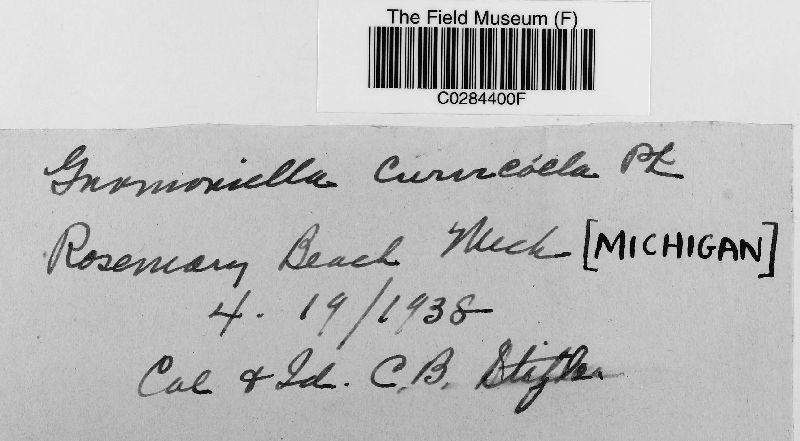 The Field Museum (F)
C0284400F
Gnomoniella
Rosemary Beach Mich [MICHIGAN]
4. 19/1938
Col & Id. C.B.